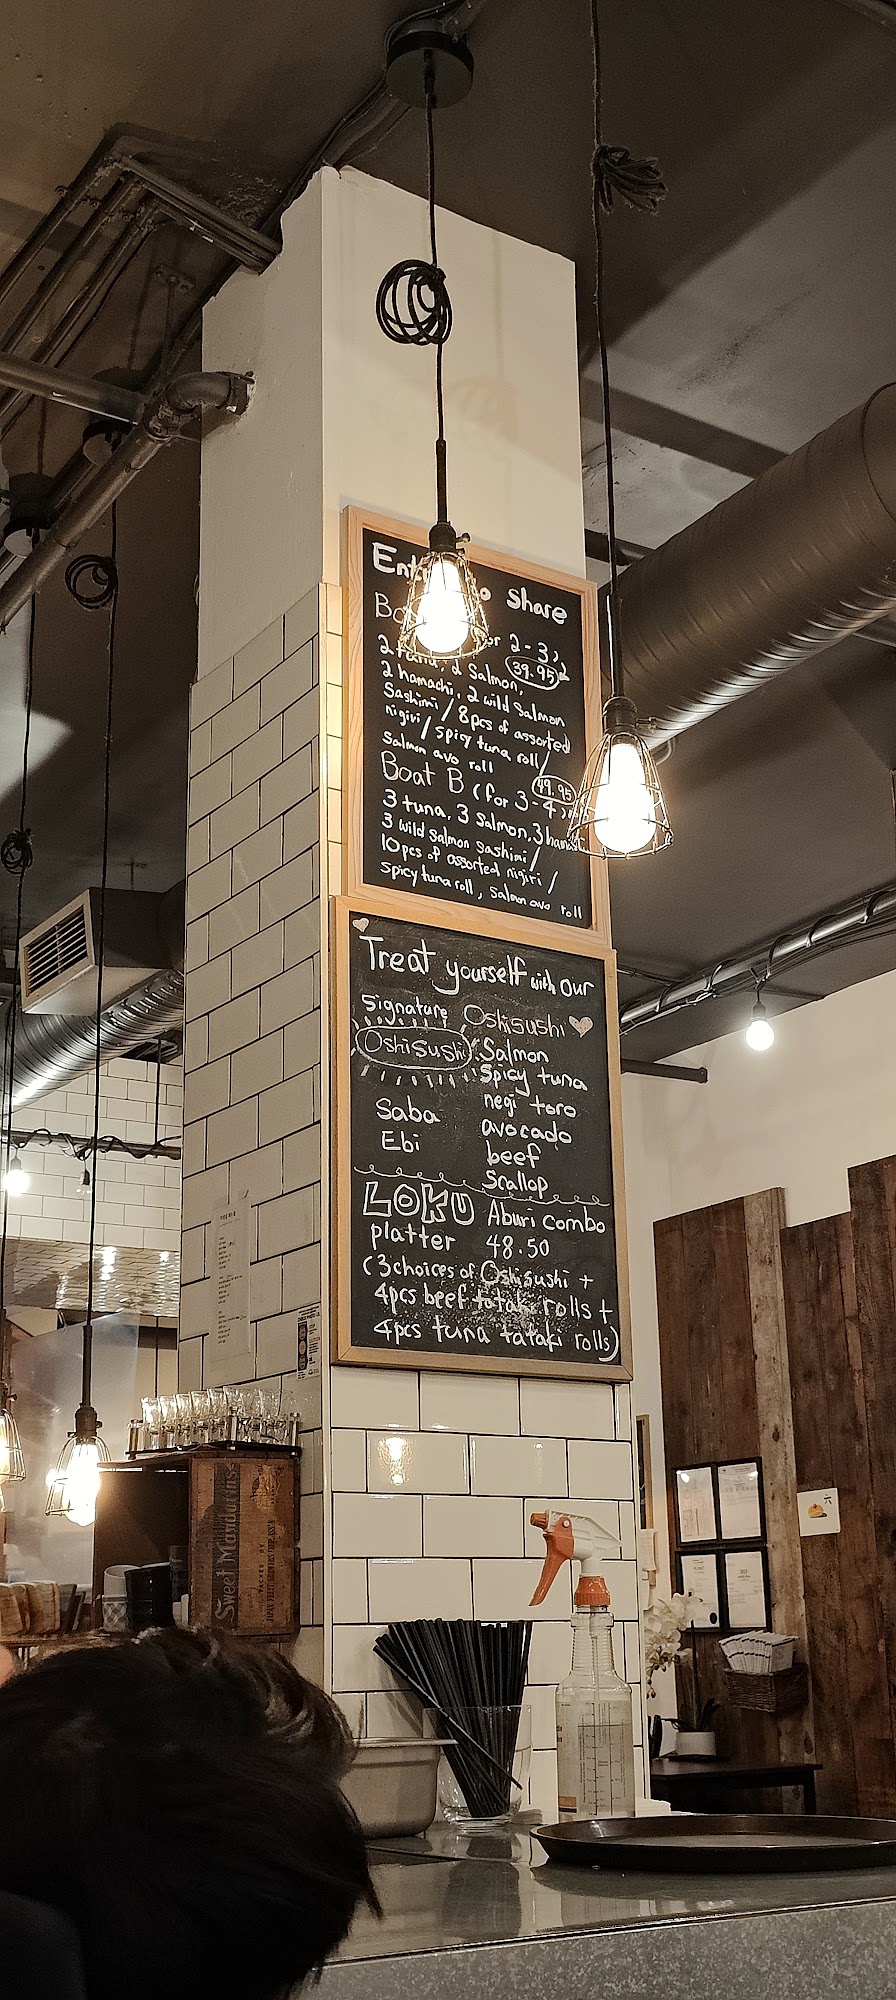 Share
2-3)
39.95
2 tuna, 2 Salmon,
2 hamachi, 2 wild Salmon
Sashimi / 8pcs of assorted
nigiri / Spicy tuna roll /
Salmon avo roll
49.95
Boat B (for 3-4)
3 tuna, 3 Salmon, 3
3 wild salmon sashimi /
10pcs of assorted nigiri /
Spicy tuna roll, Salmon avo roll
Treat yourself with our
Signature
OshiSushi
Saba
Ebi
Oshisushi
Salmon
Spicy tuna
negi toro
avocado
beef
Scallop
LOKU Aburi combo
platter 48.50
(3choices of Oshisushi +
4pcs beef tataki rolls +
4pcs tuna tataki rolls)
Sweet Mandarins
PACKED BY